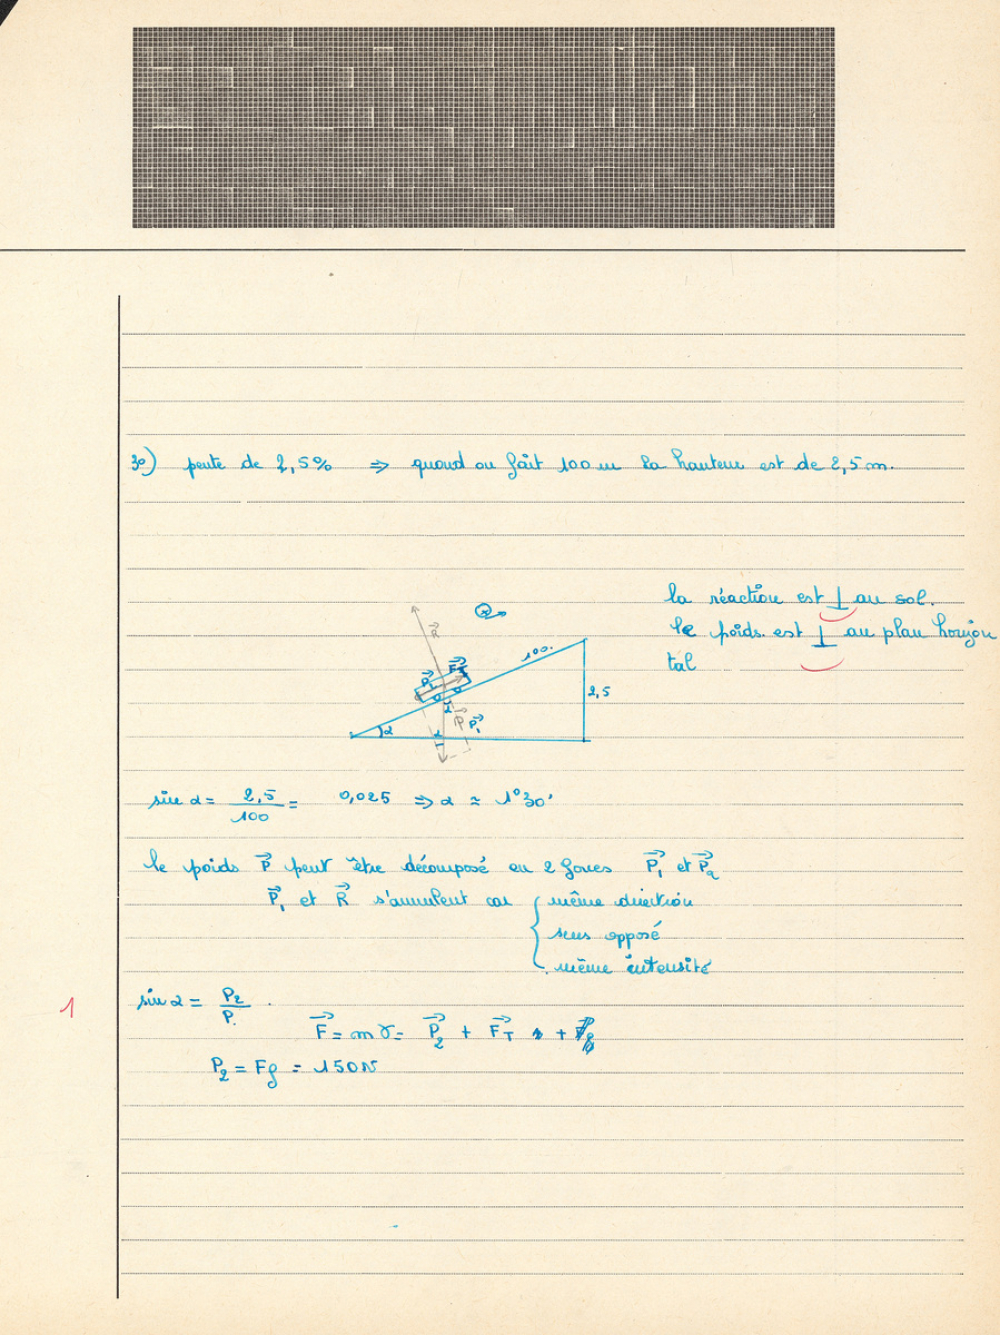 3°) pente de 2,5% ⇒ quand on fait 100 m la hauteur est de 2,5 m.
la réaction est ⊥ au sol.
le poids est ⊥ au plan horizon
tal
+
R
100.
F_T
P_2
2,5
α
α
P
P_1
α
sin α = 2,5/100 = 0,025 ⇒ α ≈ 1°30'
le poids P⃗ peut être décomposé en 2 forces P⃗_1 et P⃗_2
P⃗_1 et R⃗ s'annulent car { même direction
sens opposé
même intensité
1
sin α = P_2/P.
F⃗ = m γ = P⃗_2 + F⃗_T +
P_2 = Ff = 150N